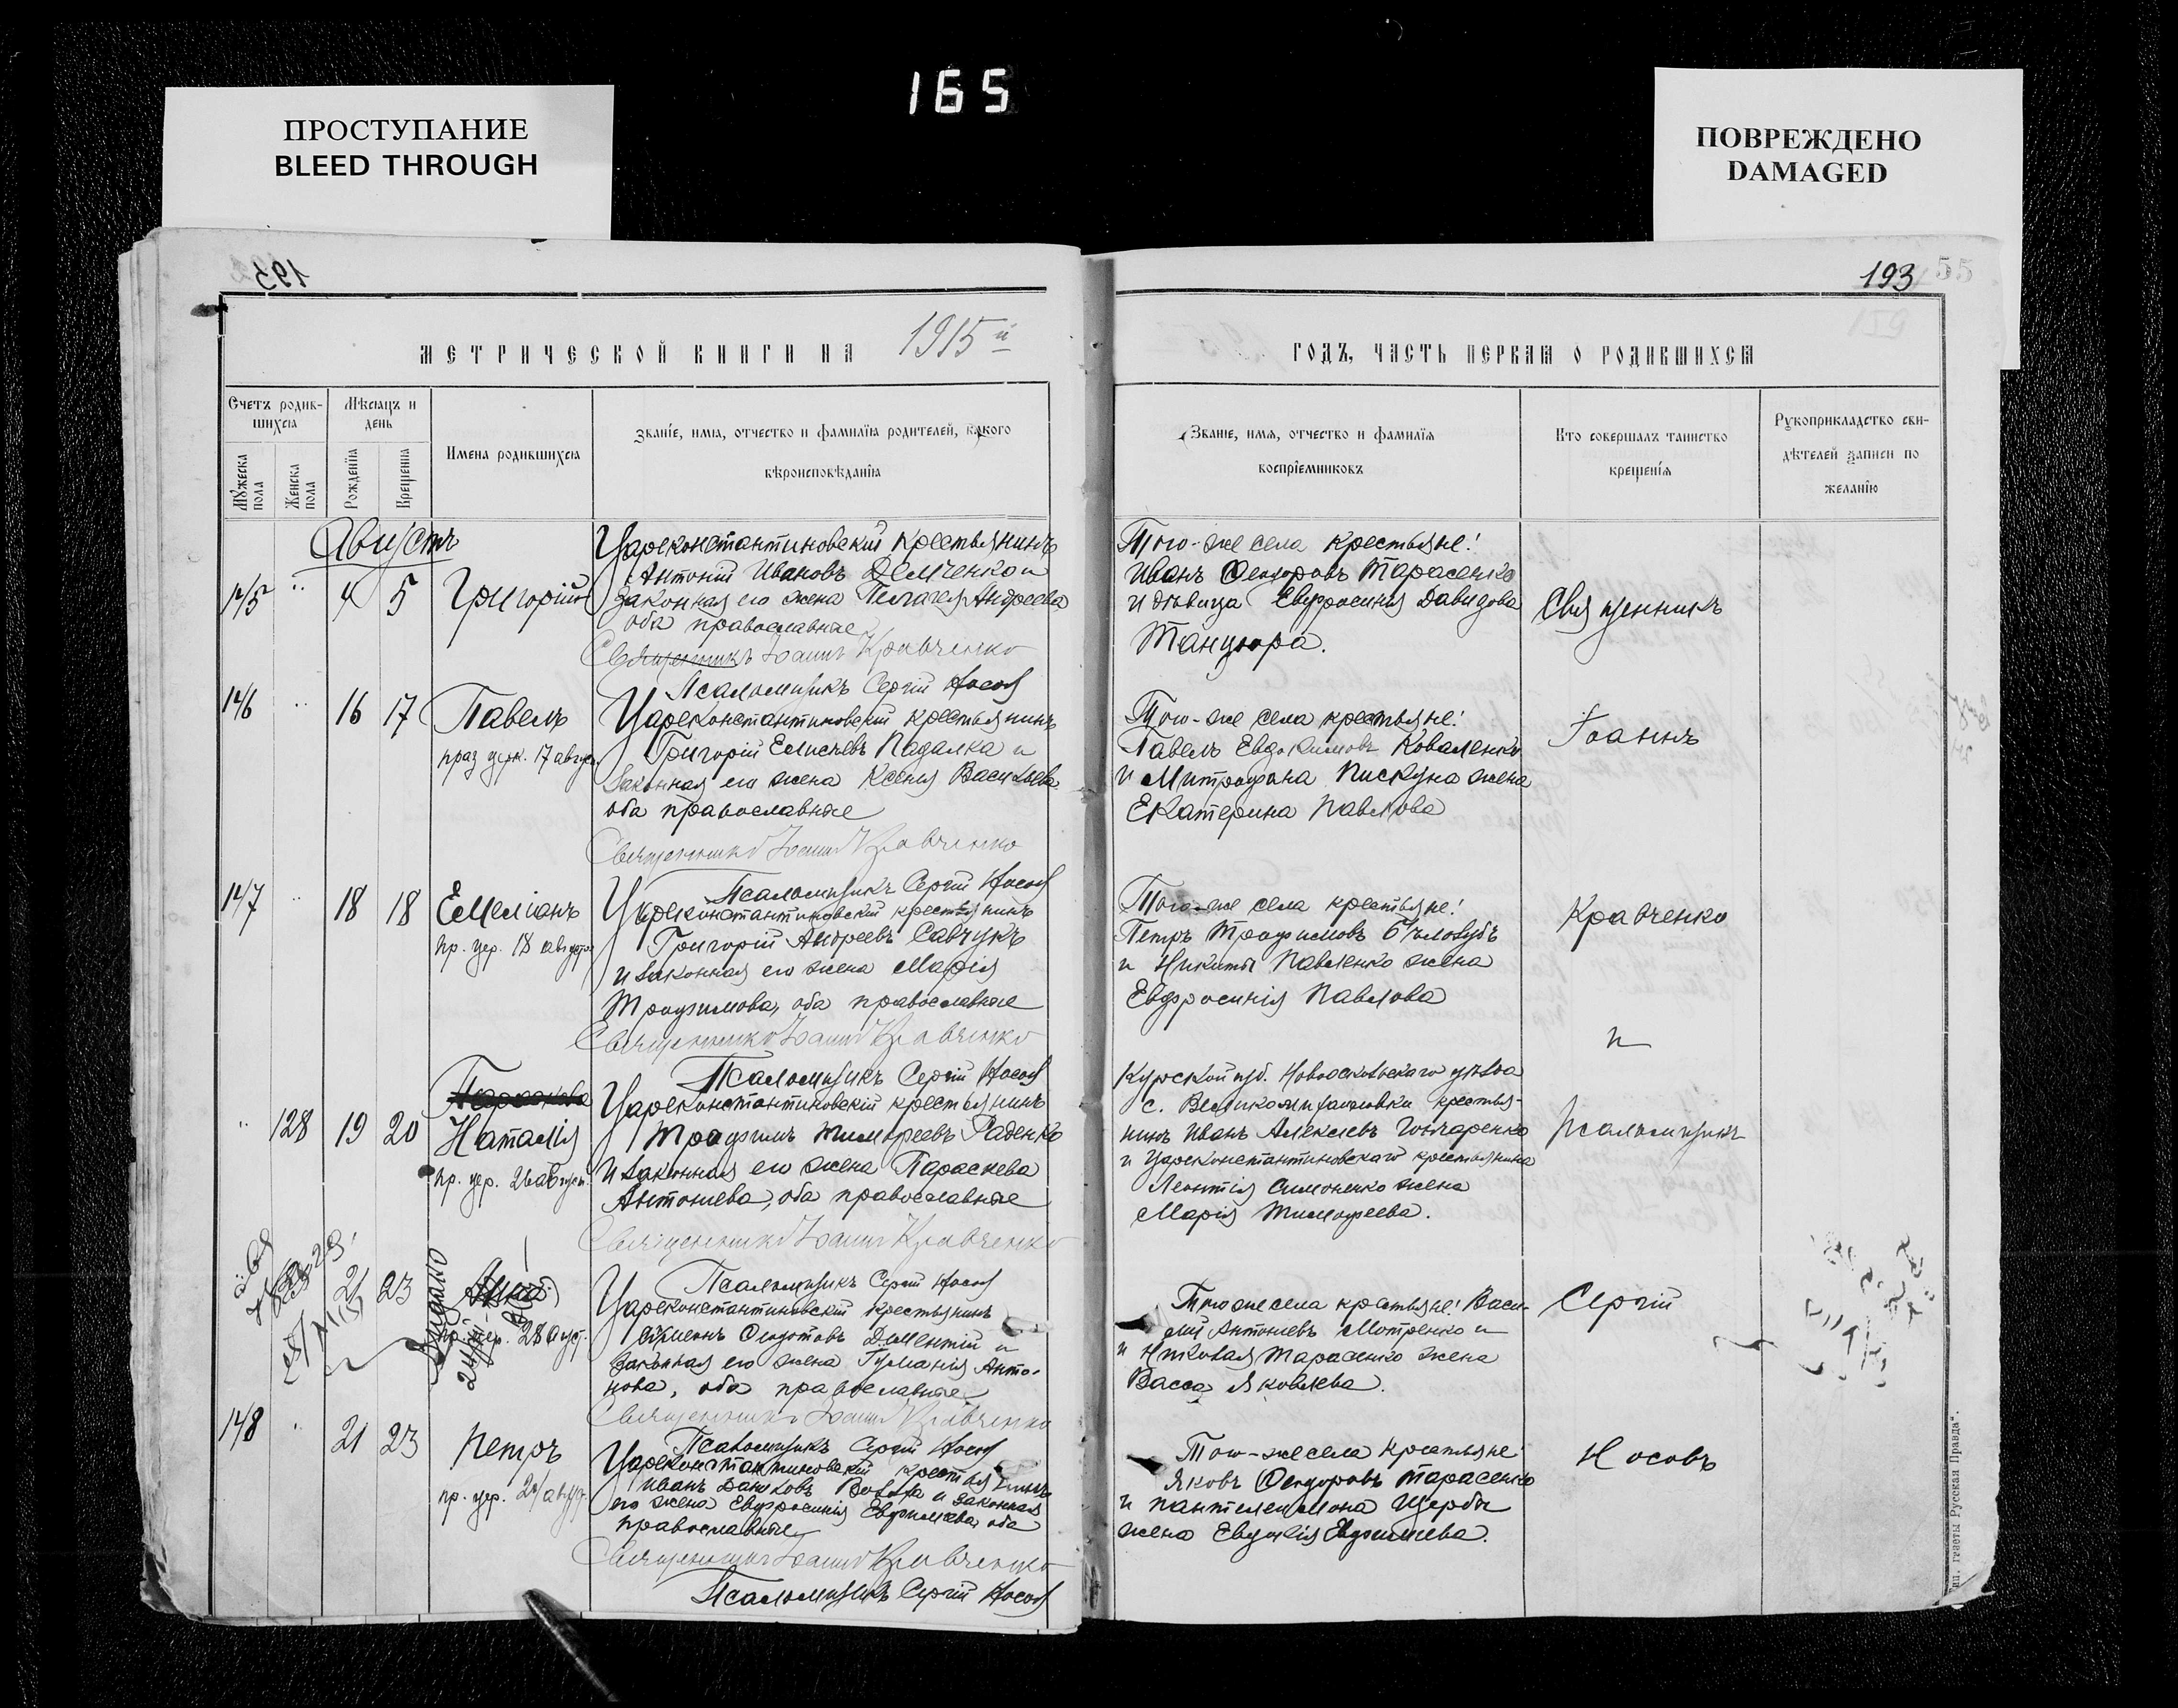 165
ПРОСТУПАНИЕ
BLEED THROUGH
ПОВРЕЖДЕНО
DAMAGED
193
193 55
МЕТРИЧЕСКОЙ КНИГИ НА 1915й
ГОДЪ, ЧАСТЬ ПЕРВАЯ О РОДИВШИХСЯ
Счетъ родившихся
Мѣсяцъ и день
Имена родившихся
Званіе, имя, отчество и фамилія родителей, какого
вѣроисповѣданія
Мужеска пола
Женска пола
Рожденія
Крещенія
Званіе, имя, отчество и фамилія
воспріемниковъ
Кто совершалъ таинство
крещенія
Рукоприкладство сви-
дѣтелей записи по
желанію
Августъ
145 " 4 5 Григорій
Цареконстантиновскій крестьянинъ
Антоній Ивановъ Демченко и
законная его жена Пелагея Андреева
оба православные
Священникъ Іоаннъ Кравченко
Псаломщикъ Сергій Носовъ
Того-же села крестьяне:
Иванъ Феодоровъ Тарасенко
и дѣвица Евфросинія Давидова
Танцюра.
Священникъ
146 " 16 17 Павелъ
праз. церк. 17 август.
Цареконстантиновскій крестьянинъ
Григорій Елисеевъ Падалка и
законная его жена Ксенія Васильева
оба православные
Священникъ Іоаннъ Кравченко
Псаломщикъ Сергій Носовъ
Того-же села крестьяне:
Павелъ Евдокимовъ Коваленко
и Митрофана Пискуна жена
Екатерина Павлова
Іоаннъ
147 " 18 18 Емеліанъ
пр. цер. 18 августа
Цареконстантиновскій крестьянинъ
Григорій Андреевъ Савчукъ
и законная его жена Марія
Трофимова, оба православные
Священникъ Іоаннъ Кравченко
Псаломщикъ Сергій Носовъ
Того-же села крестьяне:
Петръ Трофимовъ Бѣлозубъ
и Никиты Павленко жена
Евфросинія Павлова
Кравченко
и
" 128 19 20 Параскева
Наталія
пр. цер. 26 август.
Цареконстантиновскій крестьянинъ
Трофимъ Тимофеевъ Раденко
и законная его жена Параскева
Антониева, оба православные
Священникъ Іоаннъ Кравченко
Псаломщикъ Сергій Носовъ
Курской губ. Новооскольскаго уѣзда
с. Великомихайловки крестья-
нинъ Иванъ Алексѣевъ Гончаренко
и Цареконстантиновскаго крестьянина
Леонтія Симоненко жена
Марія Тимофеева.
Псаломщикъ
21 23 Анна
пр. цер. 28 август.
Выдано
Цареконстантиновскій крестьянинъ
Сѵмеонъ Феодотовъ Дементій и
законная его жена Гуманія Анто-
нова, оба православные
Священникъ Іоаннъ Кравченко
Псаломщикъ Сергій Носовъ
Того же села крестьяне: Васи-
лій Антониевъ Мотренко и
и Николая Тарасенко жена
Васса Яковлева.
Сергій
148 " 21 23 Петръ
пр. цер. 24 август.
Цареконстантиновскій крестьянинъ
Иванъ Даниловъ и законная
его жена Евфросинія Евфимиева, оба
православные
Священникъ Іоаннъ Кравченко
Псаломщикъ Сергій Носовъ
Того-же села крестьяне
Яковъ Феодоровъ Тарасенко
и Пантелеимона Щербы
жена Евдокія Евфимиева.
Носовъ
газеты Русская Правда".